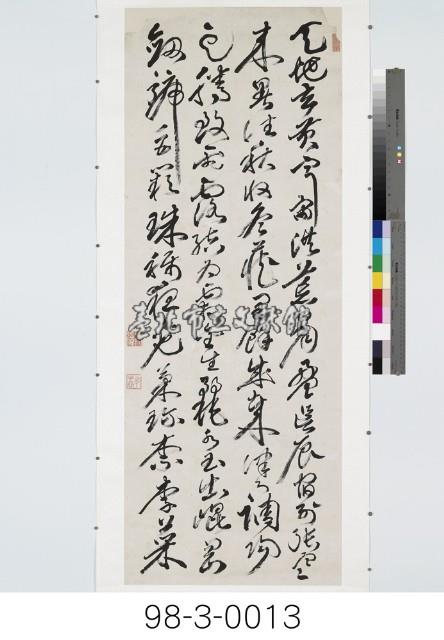 天地玄黃宇宙洪荒日月盈昃辰宿列張寒
來暑往秋收冬藏閏餘成歲律呂調陽
雲騰致雨露結為霜金生麗水玉出崑岡
劍號巨闕珠稱夜光果珍柰李菜
臺北市立文獻館
98-3-0013